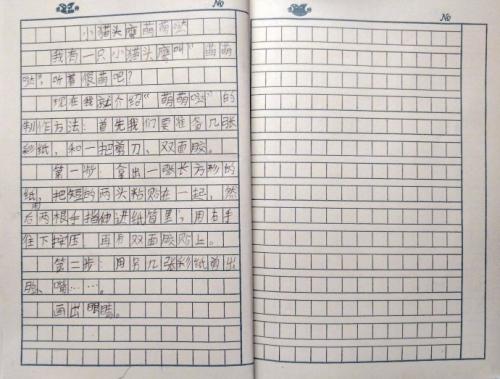 No
小猫头鹰萌萌哒
我有一只小猫头鹰叫“萌萌
哒”，听着很萌吧？
现在我就介绍“萌萌哒”的
制作方法：首先我们要准备几张
彩纸，和一把剪刀、双面胶。
第一步：拿出一张长方形的
纸，把短的两头粘贴在一起，然
后用两根手指伸进纸筒里，用右手
往下按压，再用双面胶贴上。
第二步：用另几张彩纸剪出
脸、嘴……。
画出眼睛。
No